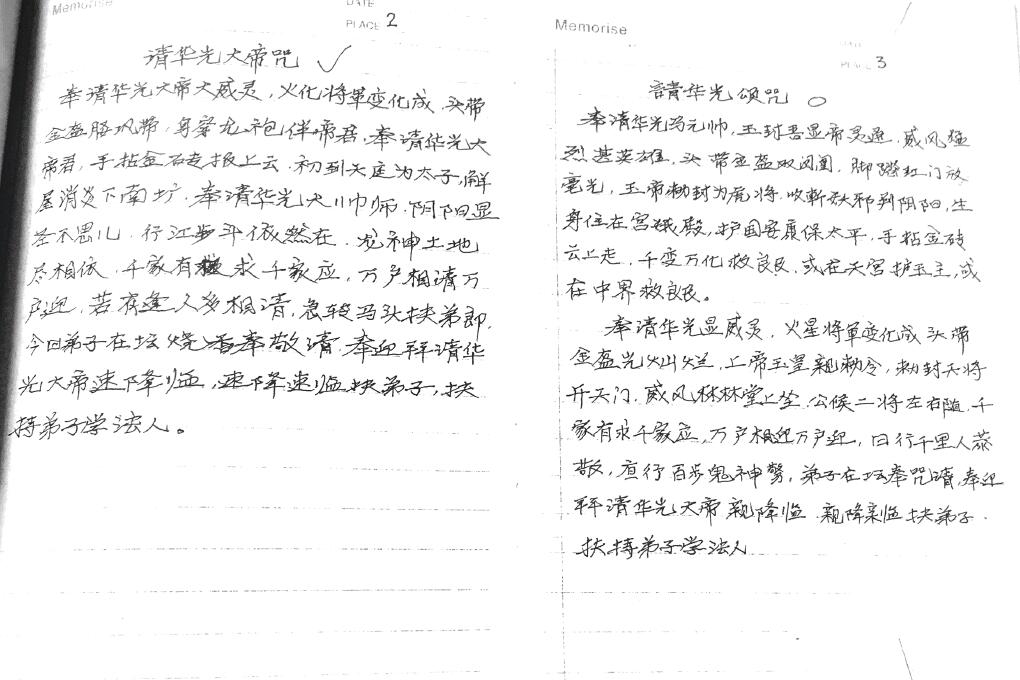 Memorise
DATE
PLACE 2
请华光大帝咒 ✓
奉请华光大帝大威灵，火化将軍变化成，头带
金盔胳巩带，身穿龙袍伴帝君，奉请华光大
帝君，手拈金石专报上云，初到天庭为太子，解
屋消炎下南圹，奉请华光大川帅师，阴阳显
圣不思儿，行江步斗依然在，龙神土地
尽相依，千家有 求千家应，万户相请万
户迎，若有逢人多相请，急转马头扶弟郎，
今回弟子在坛烧香奉敬请，奉迎拜请华
光大帝速下降临，速降速临扶弟子，扶
持弟子学法人。
Memorise
PLACE 3
請华光頌咒 ○
奉请华光马元帅，玉封吾显帝灵通，威风猛
烈甚英雄，头带金盔双凤圆，脚踏红门放
毫光，玉帝勅封为尾将，收斬妖邪判阴阳，生
身住在宫娥殿，护国安康保太平，手拈金砖
云上走，千变万化救良民，或在天宫护玉主，或
在中界救良民。
奉请华光显威灵，火星将軍变化成，头带
金盔光灿烂，上帝玉皇親勅令，勅封天将
开天门，威风林林堂上坐，公候二将左右随，千
家有求千家应，万户相迎万户迎，日行千里人恭
敬，夜行百步鬼神驚，弟子在坛奉咒请，奉迎
拜请华光大帝親降临，親降来临扶弟子，
扶持弟子学法人